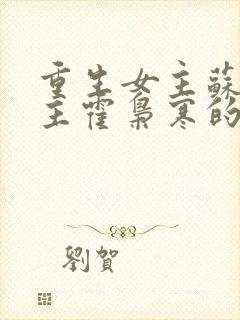 重生女主蘇
主霍梟寒的
劉賀